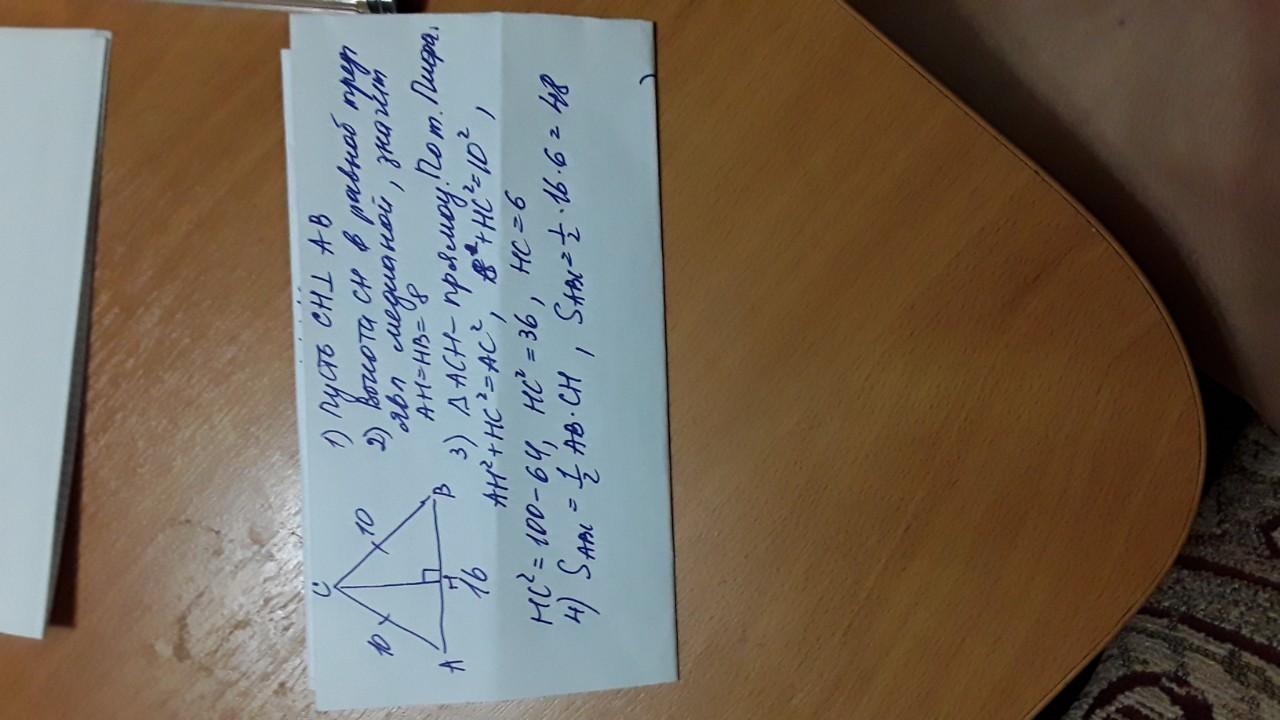 C
10
10
A
H
B
16
1) Пусть CH⊥ AB
2) Высота CH в равноб треуг
явл медианой, значит
AH=HB=8
3) ΔACH- прямоу. По т. Пифа.
AH²+HC²=AC², 8²+HC²=10²,
HC²=100-64, HC²=36, HC=6
4) SABC=½AB·CH, SABC=½·16·6=48